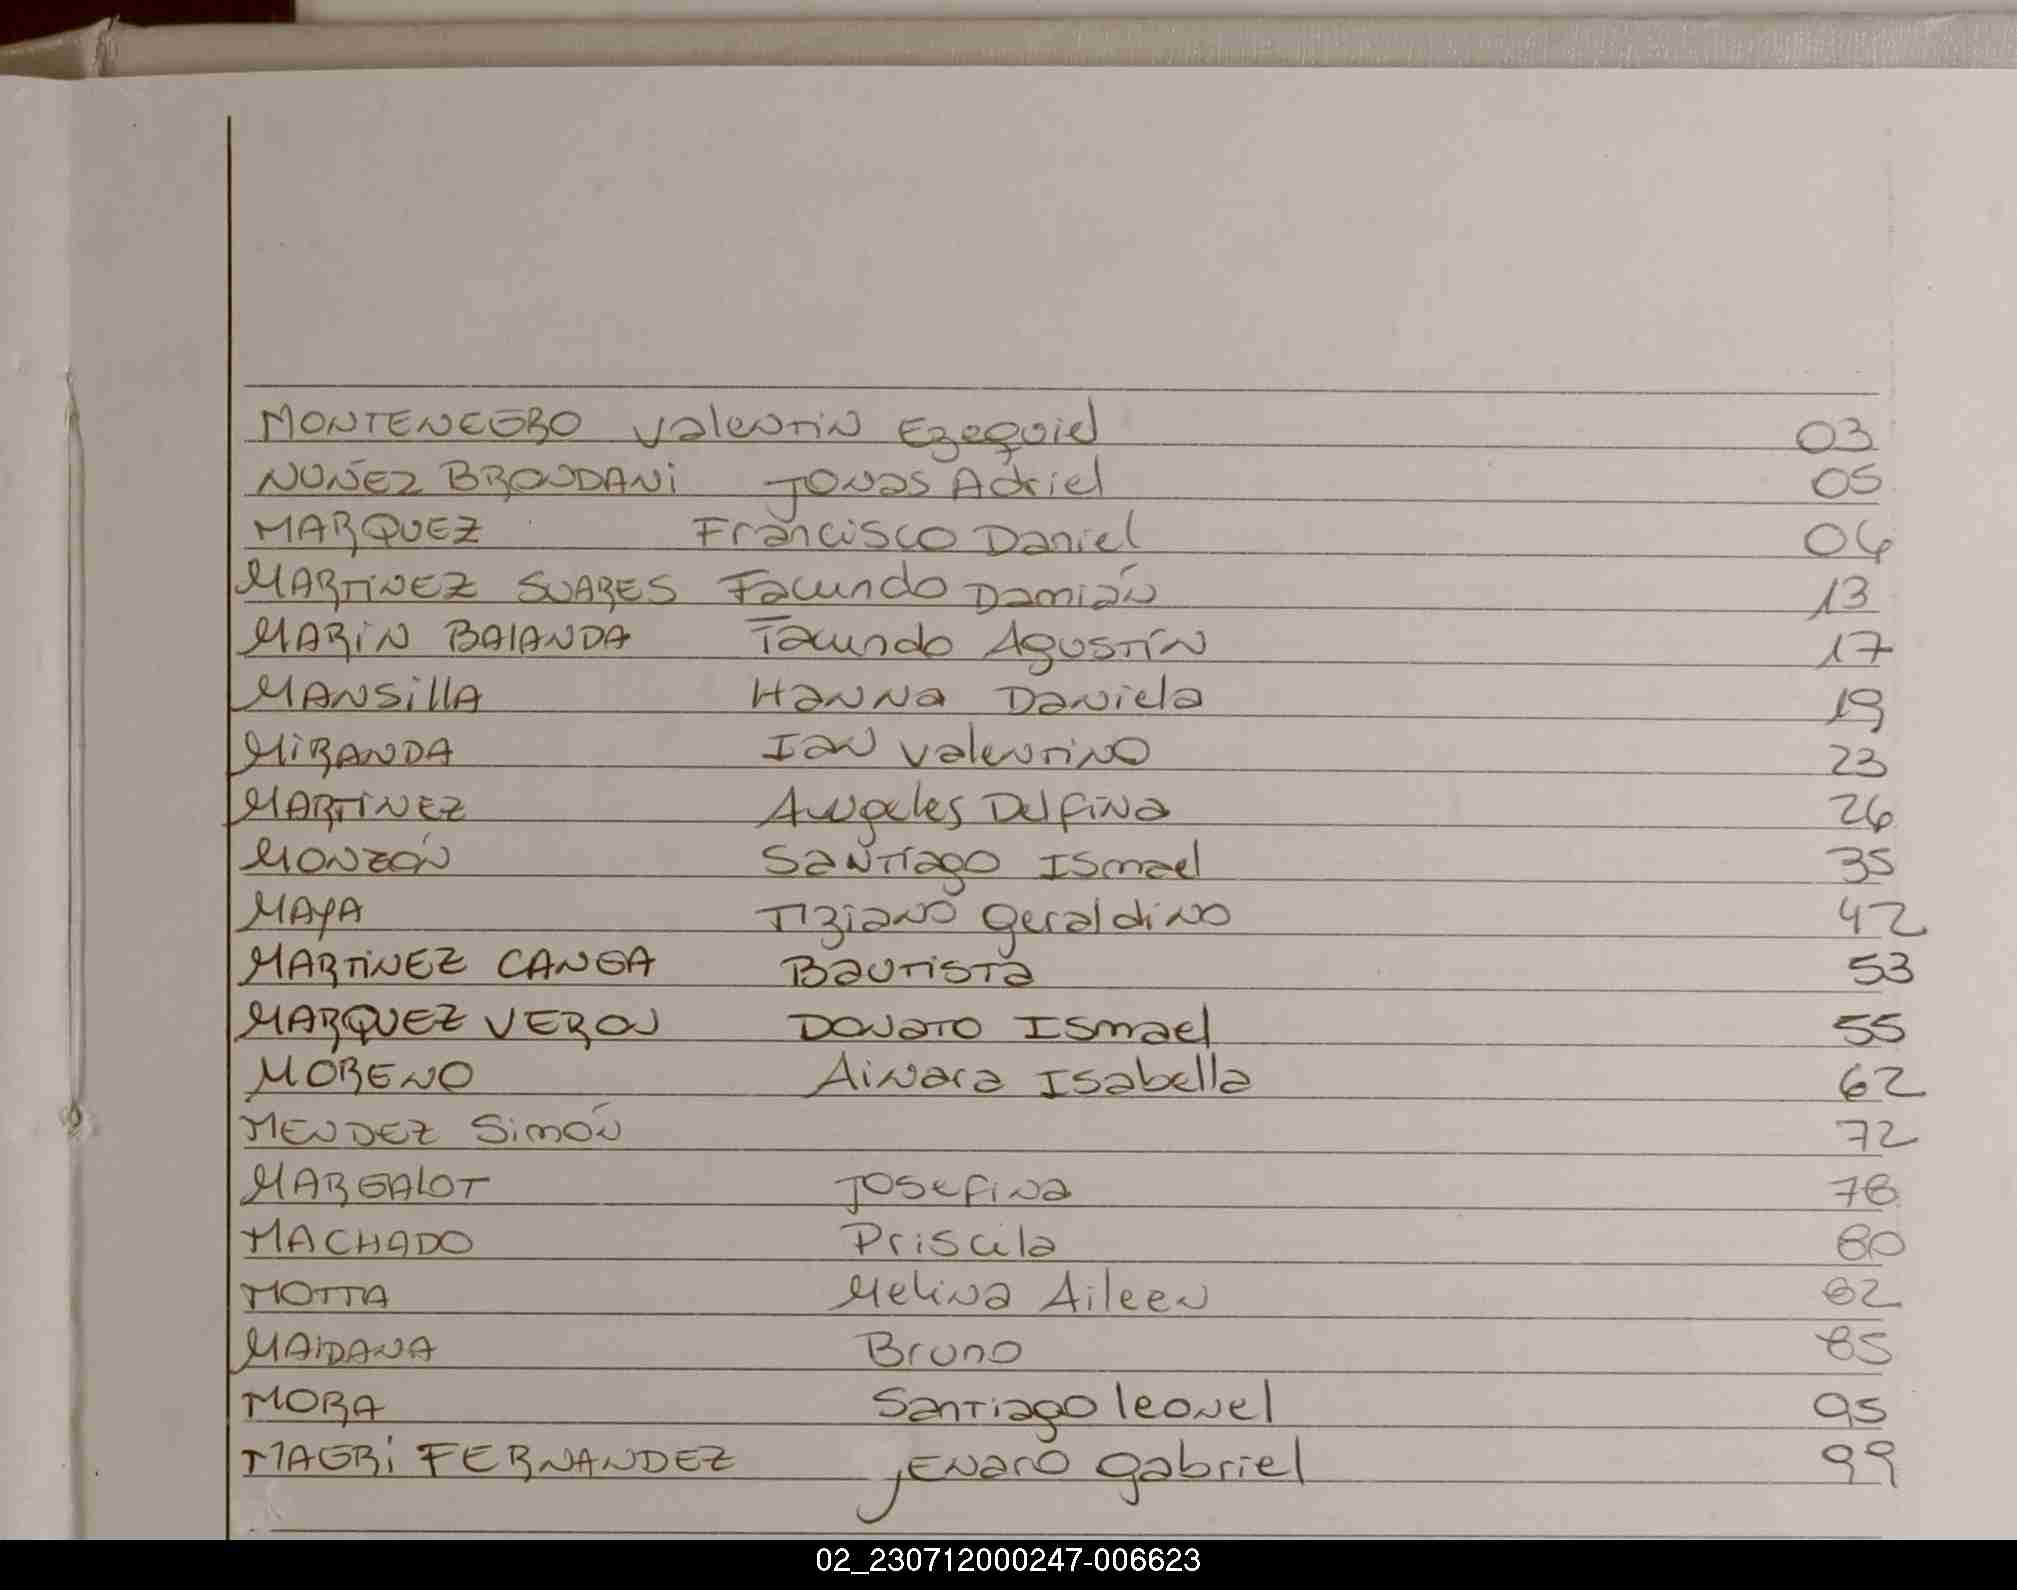 MONTENEGRO Valentin Ezequiel 03
NUÑEZ BRONDANI JONAS Adriel 05
MARQUEZ Francisco Daniel 04
MARTINEZ SUARES Facundo Damián 13
MARIN BALANDA Facundo Agustín 17
MANSillA Hanna Daniela 19
MIRANDA Ian Valentino 23
MARTINEZ Angeles Delfina 26
MONZÓN Santiago Ismael 35
MAYA Tiziano Geraldino 42
MARTINEZ CANGA Bautista 53
MARQUEZ VERON Donato Ismael 55
MORENO Ainara Isabella 62
MENDEZ Simón 72
MARGALOT Josefina 78
MACHADO Priscila 80
MOTTA Melina Aileen 82
MAIDANA Bruno 85
MORA Santiago leonel 95
MAGRI FERNANDEZ JENARO Gabriel 99
02_230712000247-006623